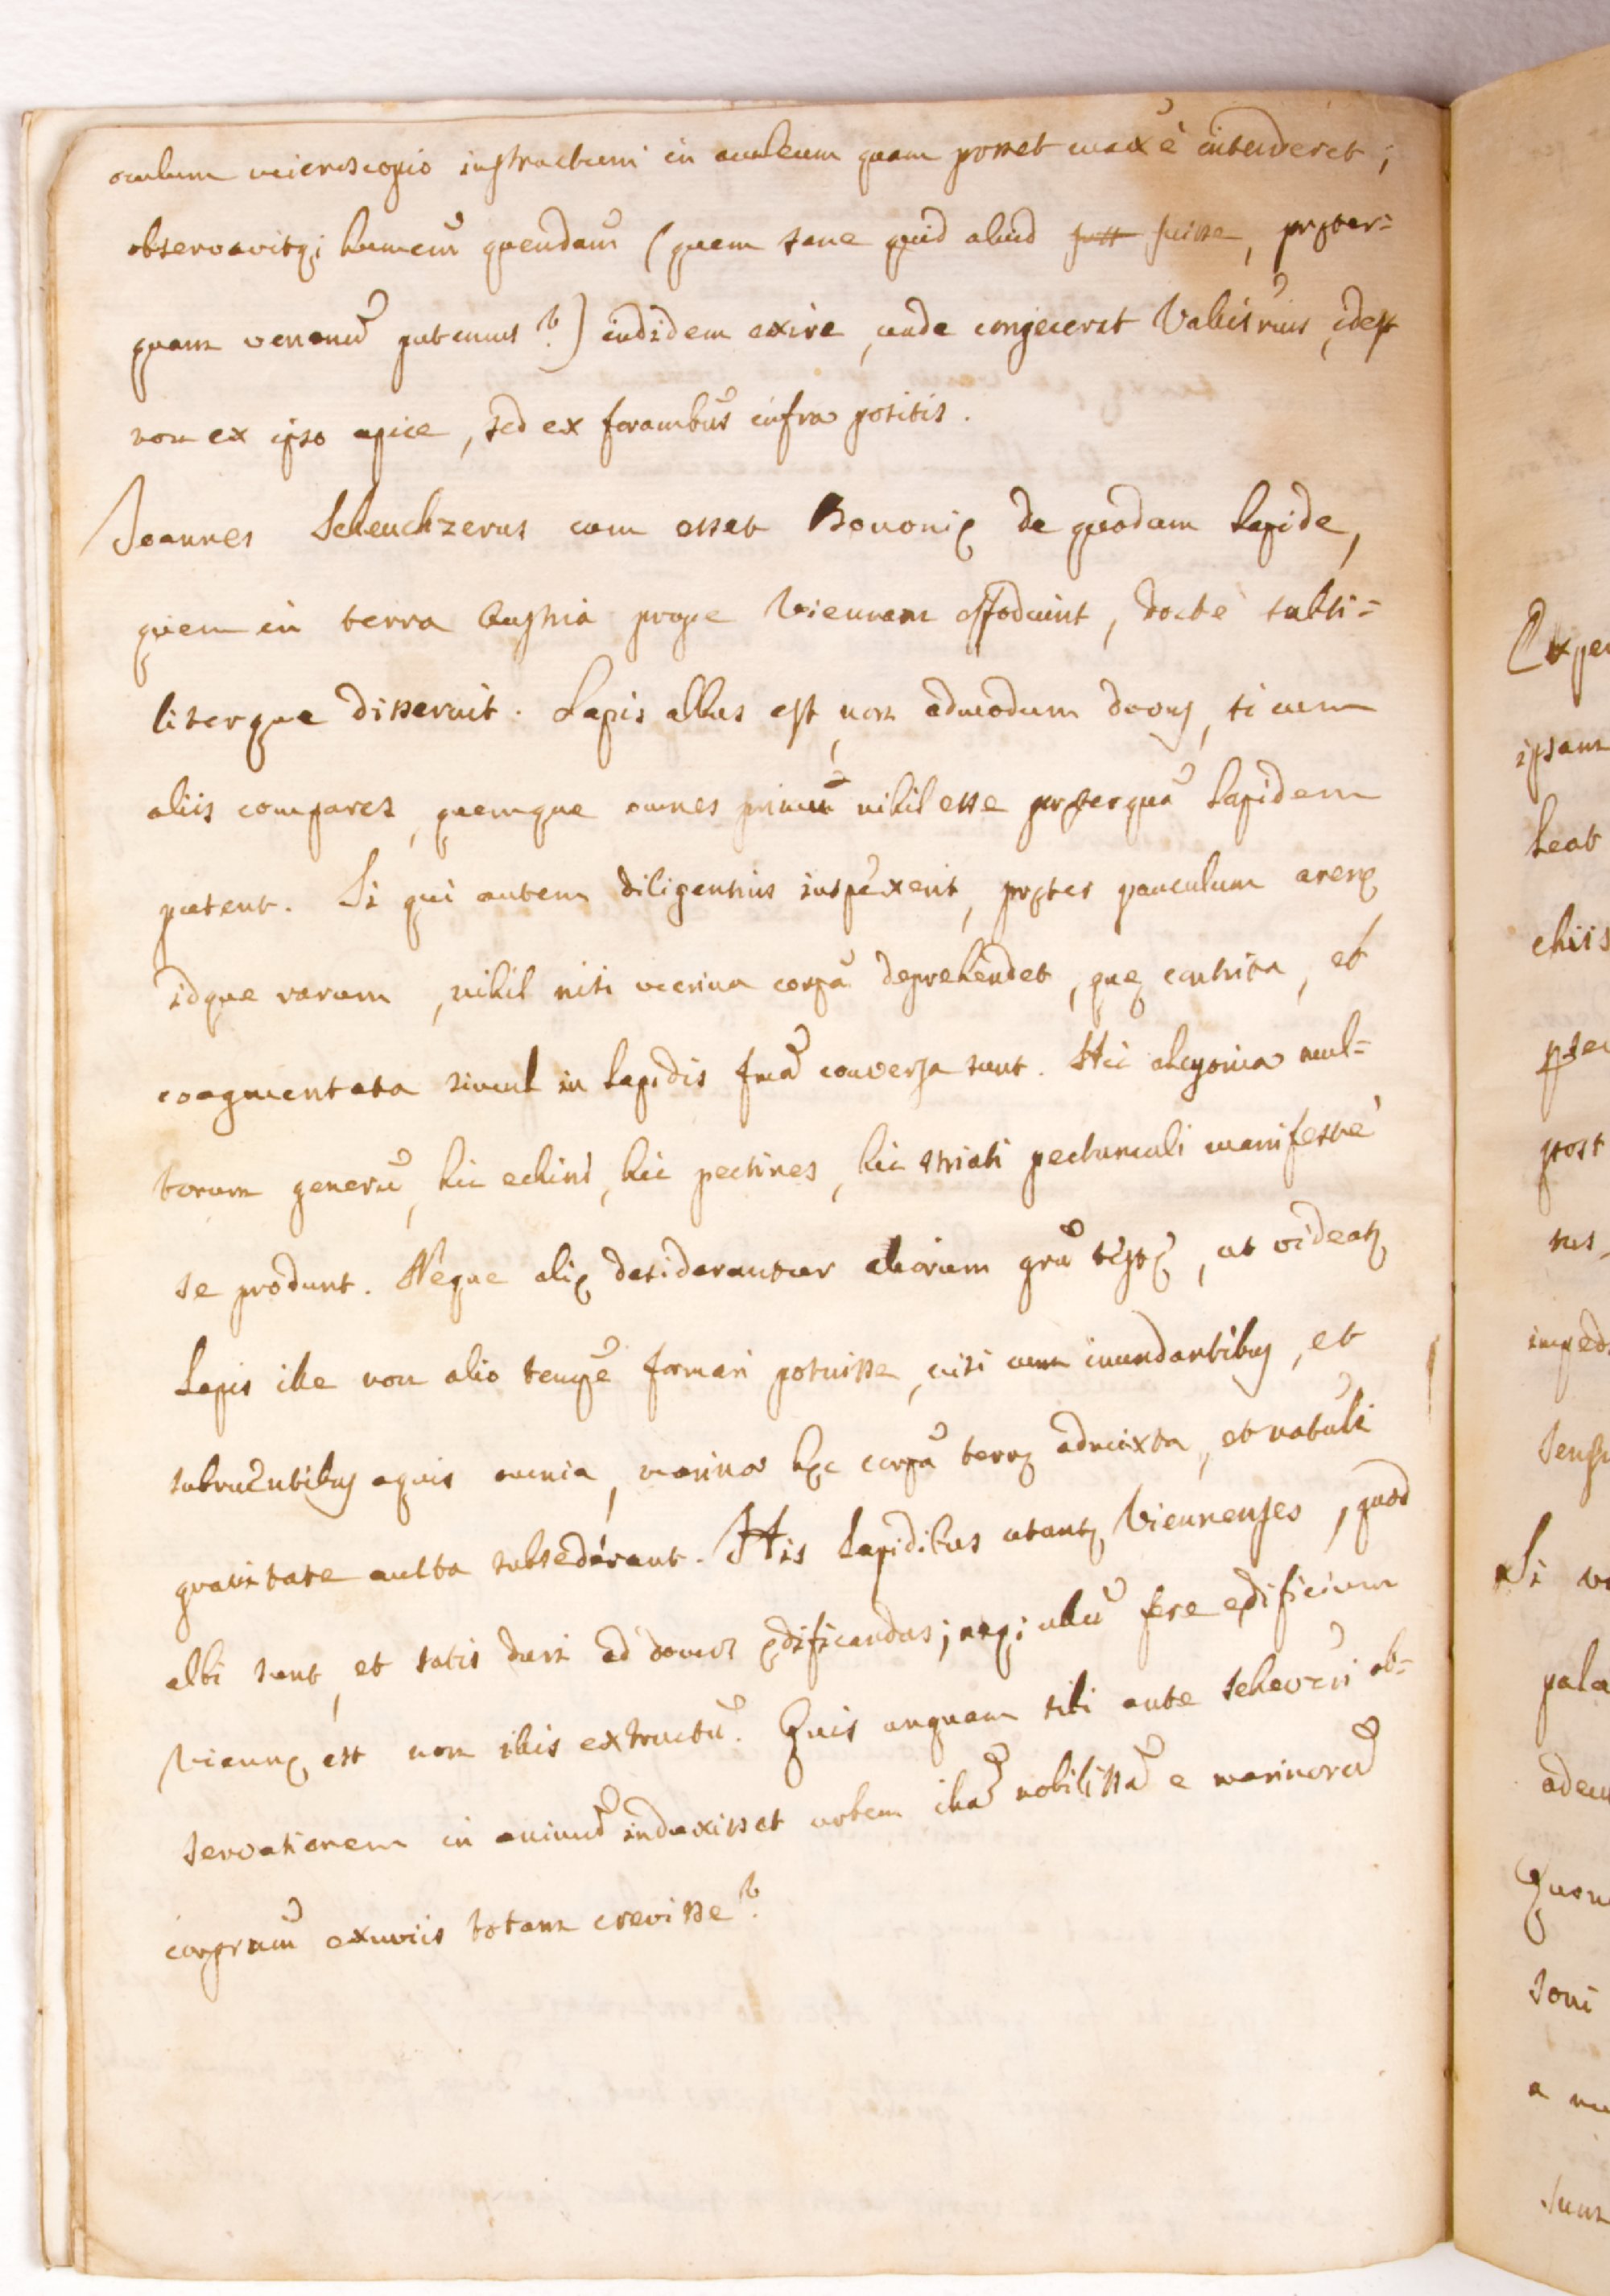 oculum microscopio instructum in aculeum quam posset maxè intenderet;
observavitq; humeũ quendaũ (quem sane quid aliud fuisse, pręter=
quam venenũ putemus?) indidem exire, unde conjecerat Valisrius, idest
non ex ipso apice, sed ex foraminibus infra positis.
Joannes Scheuchzerus cum esset Bononię de quodam lapide,
quem in terra Austria prope Viennam effodiunt, doctè subti=
literque disseruit. Lapis albus est, non admodum durus, si cum
aliis compares, quemque omnes primũ nihil esse pręterquã lapidem
putent. Si qui autem diligentius inspexerit, pręter pauculum arenę
idque rarum, nihil nisi marina corpã deprehendet, quę contrita, et
coagmentata simul in lapidis fmã conversa sunt. Hic alcyonia mul=
torum generũ, hic echini, hic pectines, hic striati pectunculi manifestè
se produnt. Neque alię desiderantur aliorum grũ testę, ut videatr
Lapis ille non alio tempe formari potuisse, nisi cum inundantibus, et
subruentibus aquis omnia, marina hęc corpã terrę admixta, et natuli
gravitate multa subsederant. His lapidibus utantr Viennenses, quod
albi sunt, et satis duri ad domos ędificandas; neq; ullũ fere ędificium
Viennę est non illis extructũ. Quis unquam sibi ante Scheuczeri ob=
servationem in animũ induxisset urbem illã nobilissã e marinorũ
corporum exuviis totam crevisse?